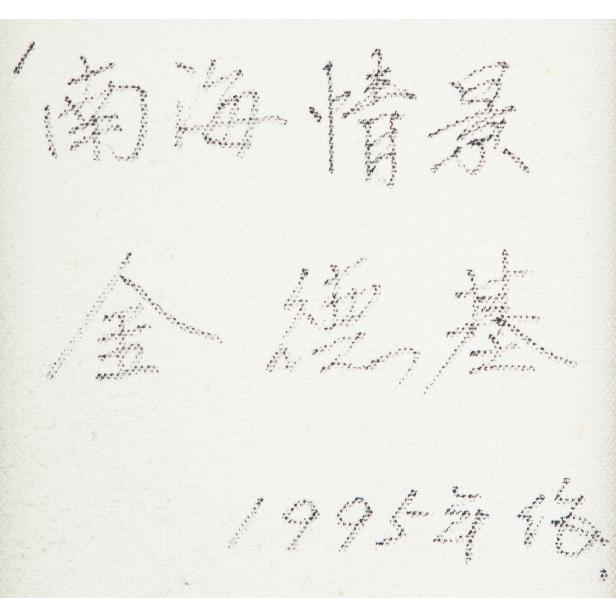 '南海情景
金德基
1995年